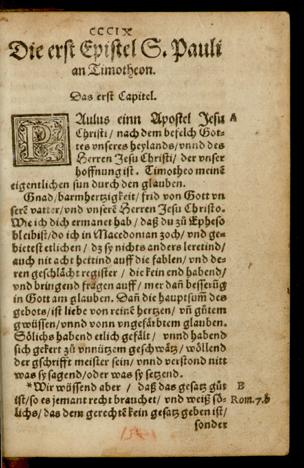 CCCIX
Die erst Epistel S. Pauli
an Timotheon.
Das erst Capitel.
PAulus einn Apostel Jesu A
Christi / nach dem befelch Got-
tes vnseres heylands / vnnd des
Herren Jesu Christi / der vnser
hoffnung ist. Timotheo meinē
eigentlichen sun durch den glauben.
Gnad / barmhertzigkeit / frid von Gott vn
serē vatter / vnd vnserē Herren Jesu Christo.
Wie ich dich ermanet hab / daß du zů Epheso
bleibist / do ich in Macedonian zoch / vnd ge-
biettest etlichen / dz sy nichts anders lerētind /
auch nit acht heitind auff die fablen / vnd de-
ren geschlächt register / die kein end habend /
vnd bringend fragen auff / mer dañ besserūg
in Gott am glauben. Dañ die hauptsum̄ des
gebots / ist liebe von reinē hertzen / vñ gůtem
gwüssen / vnnd vonn vngefärbtem glauben.
Sölichs habend etlich gefält / vnnd habend
sich gekert zů vnnützem geschwätz / wöllend
der gschrifft meister sein / vnnd verstond nitt
was sy sagend / oder was sy setzend.
*Wir wüssend aber / daß das gesatz gůt B
ist / so es jemant recht brauchet / vnd weiß sö- Rom. 7.b
lichs / das dem gerechtē kein gesatz geben ist /
sonder